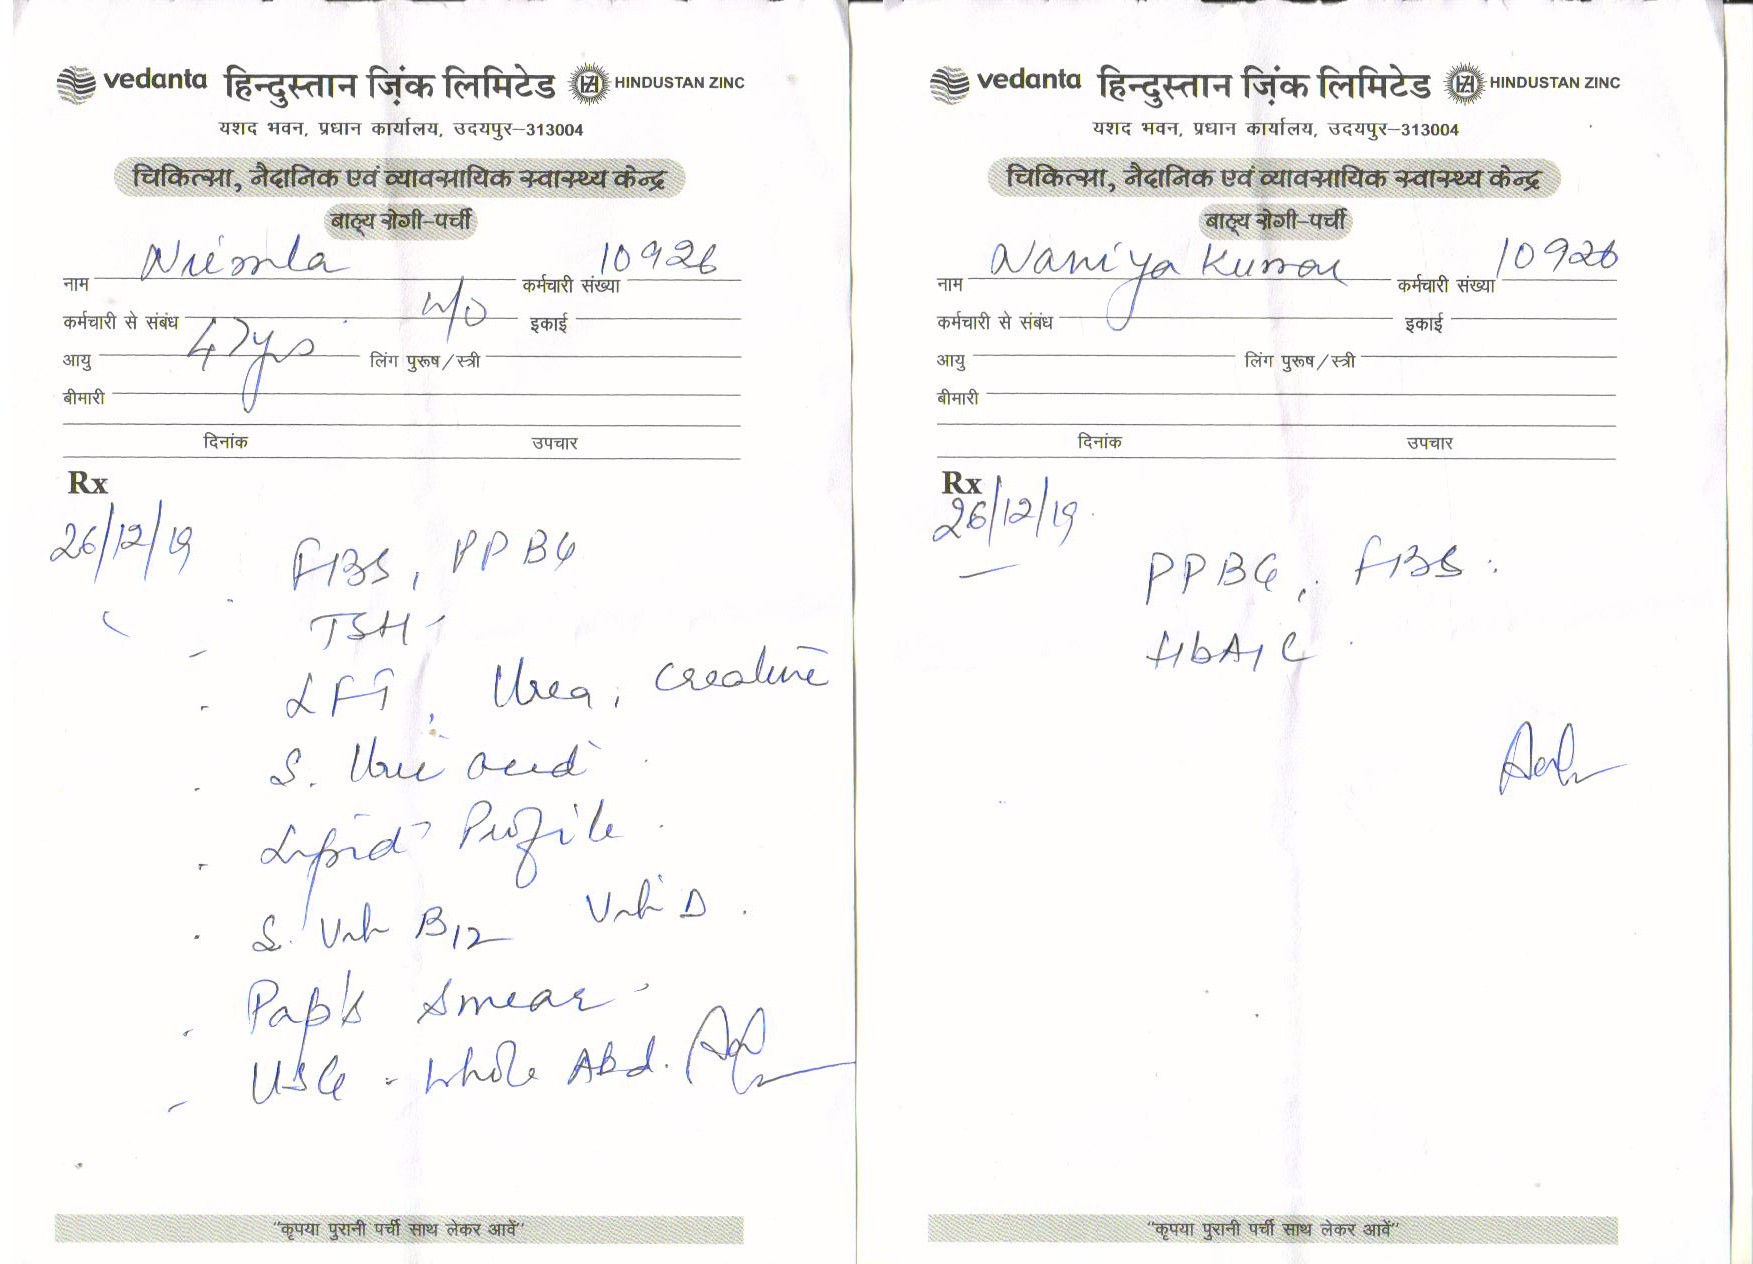 vedanta हिन्दुस्तान ज़िंक लिमिटेड HINDUSTAN ZINC
यशद भवन, प्रधान कार्यालय, उदयपुर–313004
चिकित्सा, नैदानिक एवं व्यावसायिक स्वास्थ्य केन्द्र
बाह्य रोगी-पर्ची
नाम Nirmla कर्मचारी संख्या 10926
कर्मचारी से संबंध W/O इकाई
आयु 47yrs लिंग पुरूष/स्त्री
बीमारी
दिनांक उपचार
Rx
26/12/19
FBS, PPBG
TSH
LFT, Urea, Creatine
S. Uric acid
Lipid Profile
S. Vit B12 Vit D
Pap's Smear
USG - Whole Abd.
"कृपया पुरानी पर्ची साथ लेकर आवें"
vedanta हिन्दुस्तान ज़िंक लिमिटेड HINDUSTAN ZINC
यशद भवन, प्रधान कार्यालय, उदयपुर–313004
चिकित्सा, नैदानिक एवं व्यावसायिक स्वास्थ्य केन्द्र
बाह्य रोगी-पर्ची
नाम Naniya Kumar कर्मचारी संख्या 10926
कर्मचारी से संबंध इकाई
आयु लिंग पुरूष/स्त्री
बीमारी
दिनांक उपचार
Rx
26/12/19
PPBG, FBS
HbA1C
"कृपया पुरानी पर्ची साथ लेकर आवें"